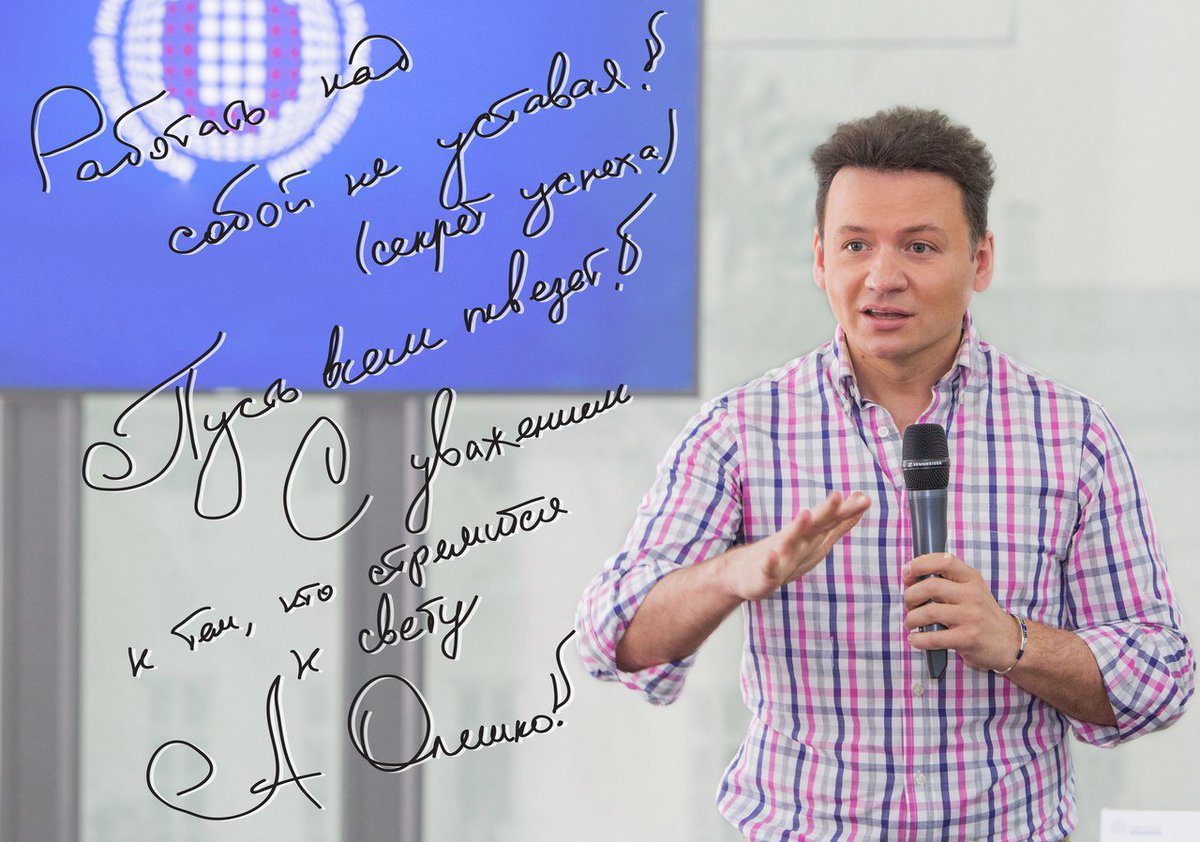 Работать над
собой не уставал!
(секрет успеха)
Пусть всем повезёт!
С уважением
к тем, кто стремится
к свету
А Олешко!
SENNHEISER